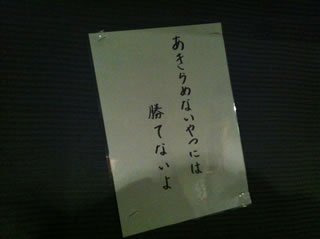 あきらめないやつには
勝てないよ